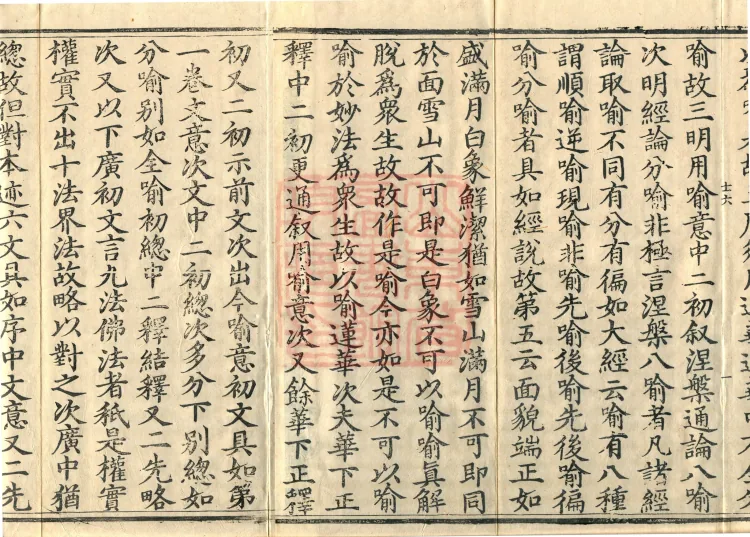 喻故三明用喻意中二初叙涅槃通論八喻
次明經論分喻非極言涅槃八喻者凡諸經
論取喻不同有分有徧如大經云喻有八種
謂順喻逆喻現喻非喻先喻後喻先後喻徧
喻分喻者具如經說故第五云面貌端正如
盛滿月白象鮮潔猶如雪山滿月不可即同
於面雪山不可即是白象不可以喻喻真解
脫為眾生故故作是喻今亦如是不可以喻
喻於妙法為眾生故以喻蓮華次夫華下正
釋中二初更通叙用喻意次又餘華下正釋
初又二初示前文次出今喻意初文具如第
一卷文意次文中二初總次多分下別總如
分喻別如全喻初總中二釋結釋又二先略
次又以下廣初文言九法佛法者秖是權實
權實不出十法界法故略以對之次廣中猶
總故但對本迹六文具如序中文意又二先